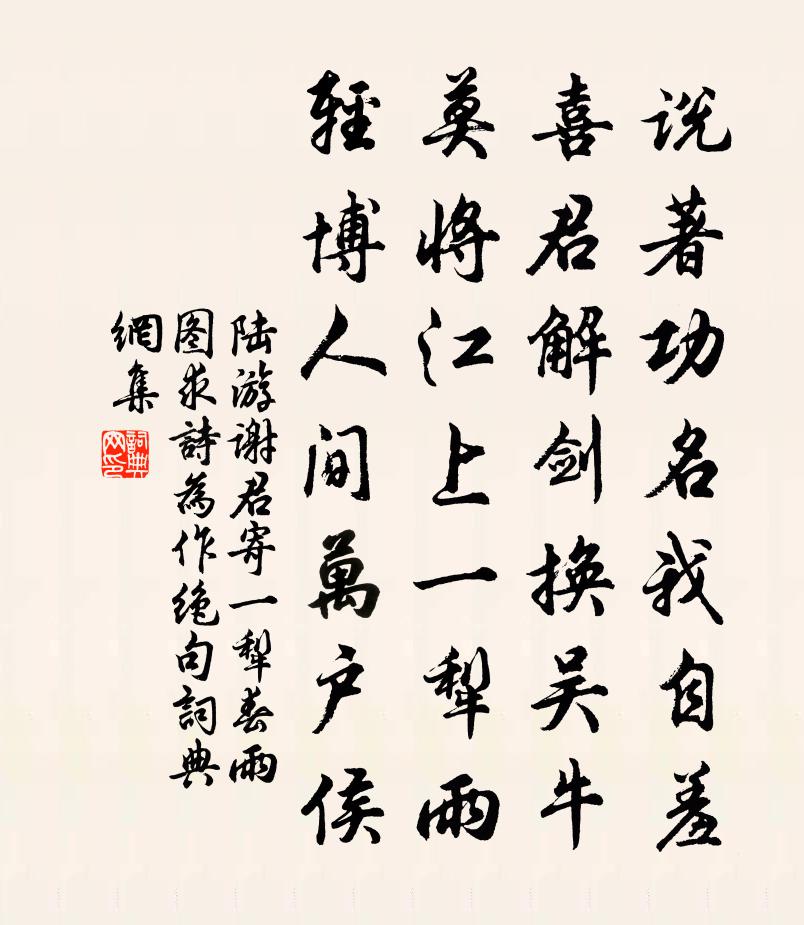 说著功名我自羞
喜君解剑换吴牛
莫將江上一犁雨
輕博人间萬户侯
陆游谢君寄一犁春雨
图求詩為作绝句詞典
網集
詞典
网印